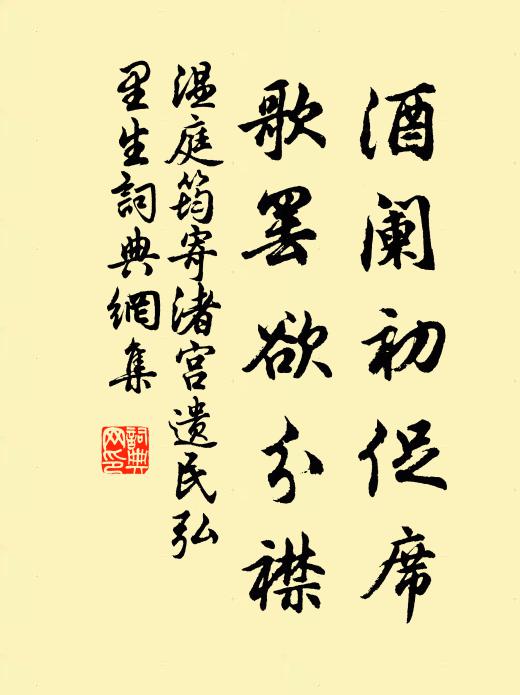 酒阑初促席
歌罢欲分襟
温庭筠寄渚宫遗民弘
里生詞典網集
詞典网印